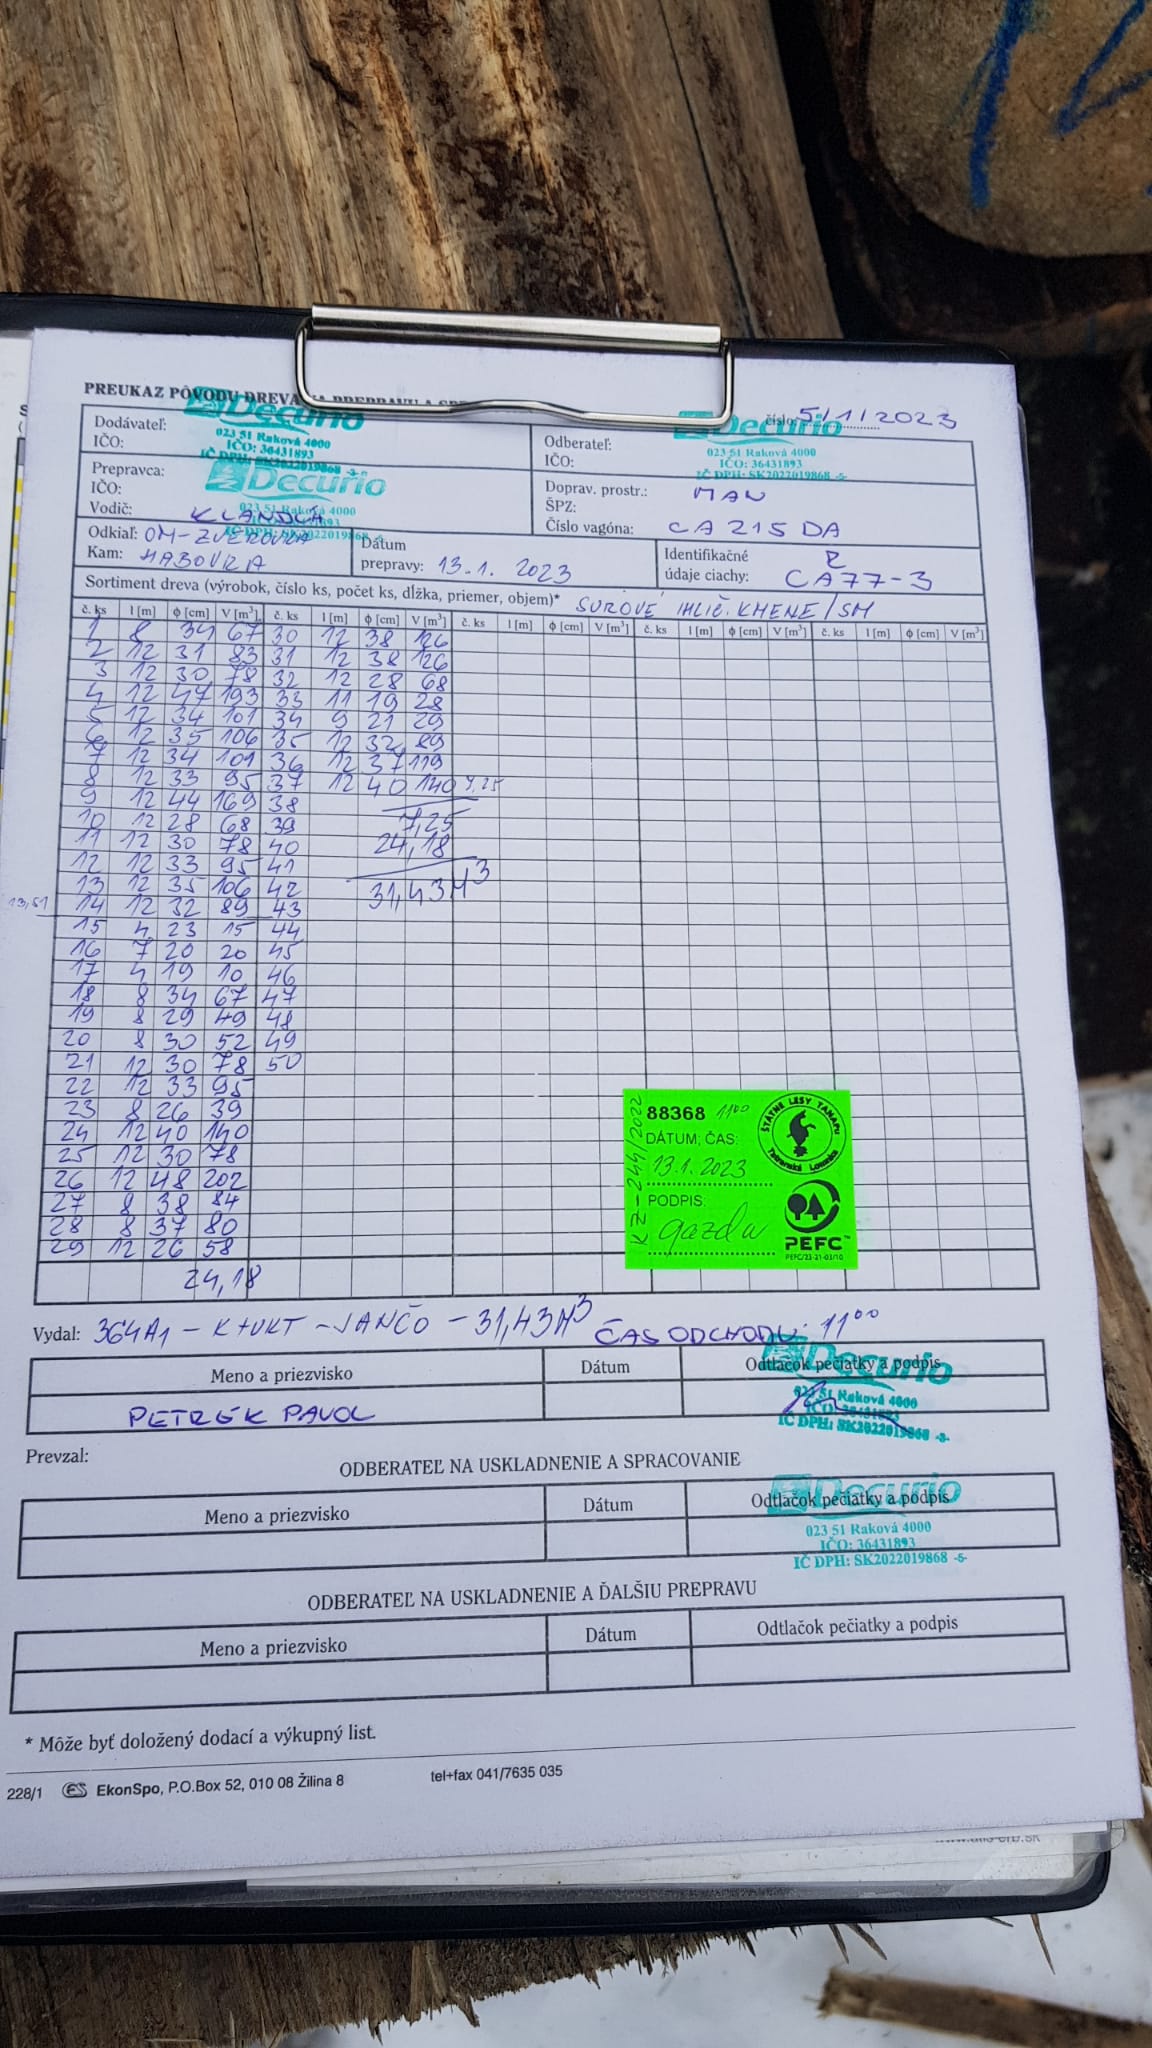 PREUKAZ PÔVODU DREVA
číslo: 5/1/2023
Decurio
023 51 Raková 4000
IČO: 36431893
IČ DPH: SK2022019868 -5-
Dodávateľ:
IČO:
Decurio
023 51 Raková 4000
IČO: 36431893
IČ DPH: SK2022019868 -5-
Odberateľ:
IČO:
Prepravca:
IČO:
Vodič:
Decurio
023 51 Raková 4000
IČ DPH: SK2022019868 -5-
Doprav. prostr.: MAN
ŠPZ:
Číslo vagóna: CA 215 DA
Odkiaľ: OM-ZVEROVKA
Kam: HABOVKA
Dátum
prepravy: 13.1. 2023
Identifikačné R
údaje ciachy: CA77-3
Sortiment dreva (výrobok, číslo ks, počet ks, dĺžka, priemer, objem)* SUROVÉ IHLIČ. KMENE/SM
č. ks l [m] ϕ [cm] V [m³] č. ks l [m] ϕ [cm] V [m³] č. ks l [m] ϕ [cm] V [m³] č. ks l [m] ϕ [cm] V [m³] č. ks l [m] ϕ [cm] V [m³]
1 8 34 67 30 12 38 126
2 12 31 83 31 12 38 126
3 12 30 78 32 12 28 68
4 12 47 193 33 11 19 28
5 12 34 101 34 9 21 29
6 12 35 106 35 12 32 89
7 12 34 101 36 12 37 119
8 12 33 95 37 12 40 140 7,25
9 12 44 169 38
10 12 28 68 39 7,25
11 12 30 78 40 24,18
12 12 33 95 41
13 12 35 106 42 31,43 M³
13,51 14 12 32 89 43
15 4 23 15 44
16 7 20 20 45
17 4 19 10 46
18 8 34 67 47
19 8 29 49 48
20 8 30 52 49
21 12 30 78 50
22 12 33 95
23 8 26 39
24 12 40 140
25 12 30 78
26 12 48 202
27 8 38 84
28 8 37 80
29 12 26 58
24,18
KZ-244/2022
88368 11⁰⁰
DÁTUM, ČAS:
13.1.2023
PODPIS:
gazda
ŠTÁTNE LESY TANAPU
Tatranská Lomnica
PEFC™
PEFC/23-21-03/10
Vydal: 364A1 - - JANČO - 31,43 M³ ČAS ODCHODU: 11⁰⁰
Meno a priezvisko Dátum Odtlačok pečiatky a podpis
PETRÉK PAVOL
Decurio
023 51 Raková 4000
IČ DPH: SK2022019868 -5-
Prevzal:
ODBERATEĽ NA USKLADNENIE A SPRACOVANIE
Meno a priezvisko Dátum Odtlačok pečiatky a podpis
Decurio
023 51 Raková 4000
IČO: 36431893
IČ DPH: SK2022019868 -5-
ODBERATEĽ NA USKLADNENIE A ĎALŠIU PREPRAVU
Meno a priezvisko Dátum Odtlačok pečiatky a podpis
* Môže byť doložený dodací a výkupný list.
228/1 ES EkonSpo, P.O.Box 52, 010 08 Žilina 8 tel+fax 041/7635 035